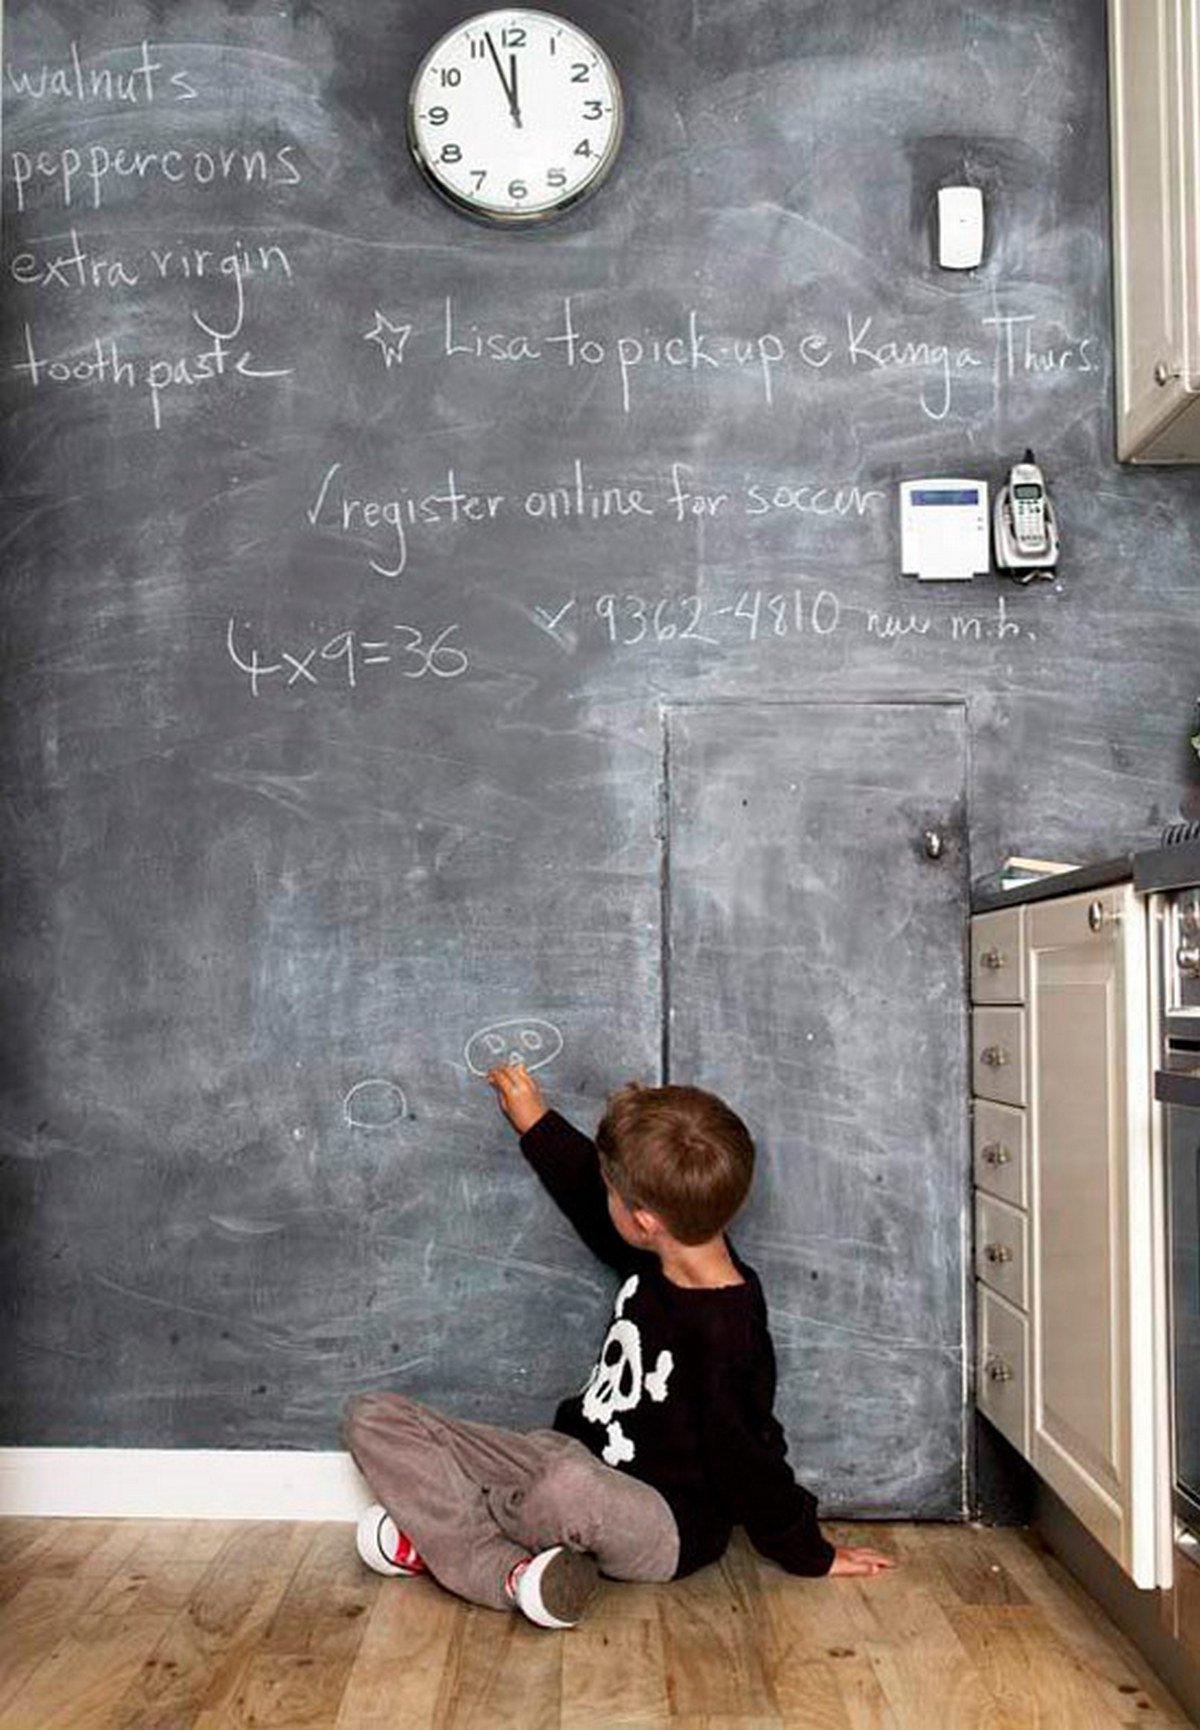 walnuts
peppercorns
extra virgin
toothpaste
Lisa to pick-up @ Kanga Thurs.
register online for soccer
4x9=36
9362-4810 new m.b.
11 12 1
10 2
9 3
8 4
7 6 5